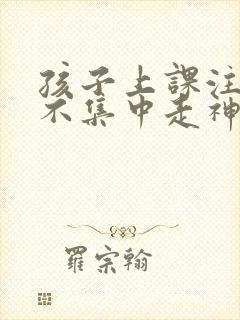 孩子上課注
不集中走神
羅宗翰